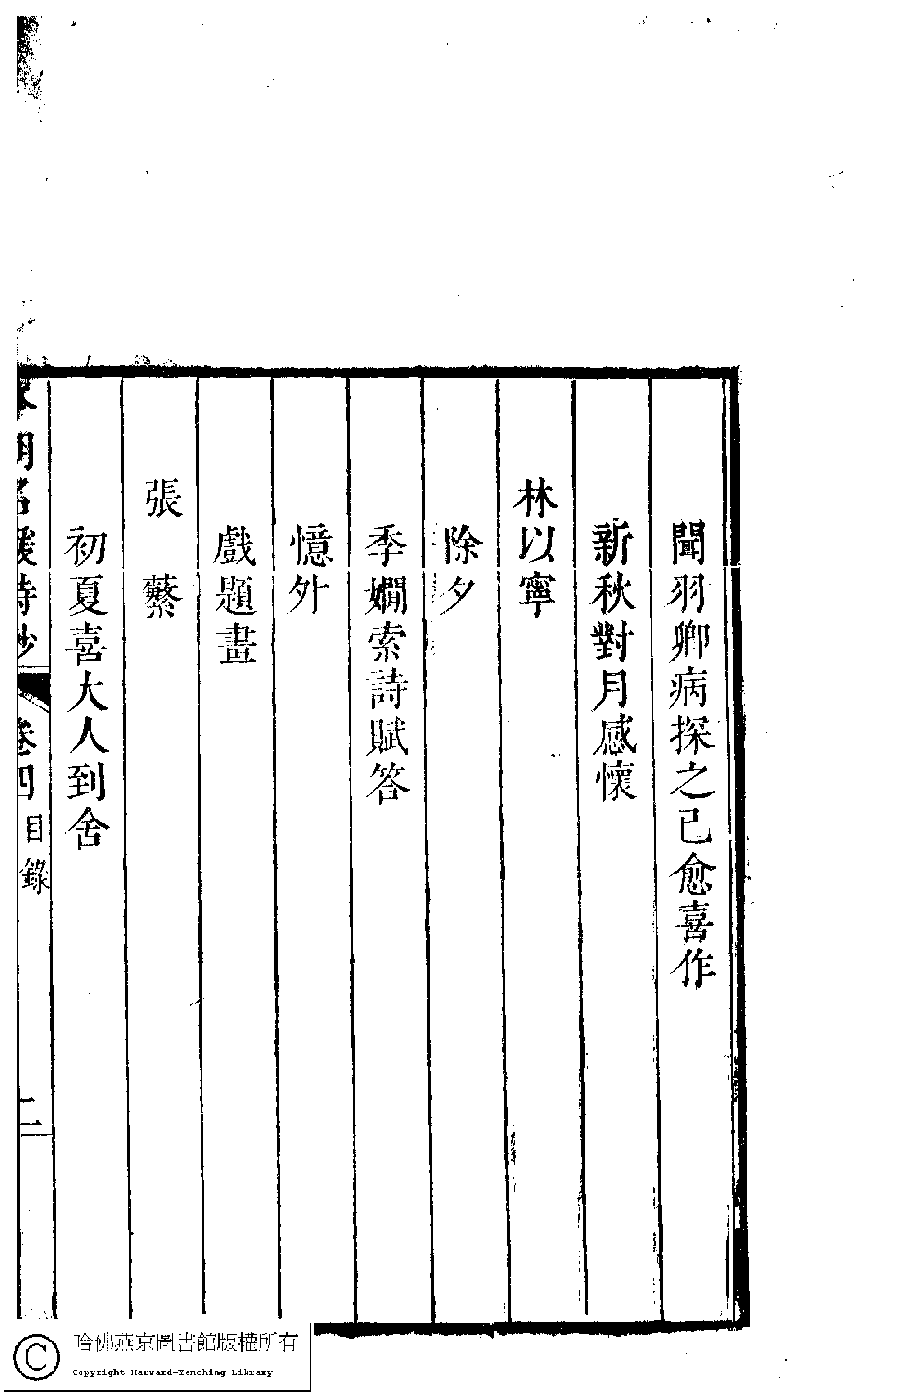 聞羽卿病探之已愈喜作
新秋對月感懷
林以寧
除夕
季嫺索詩賦答
憶外
戲題畫
張蘩
初夏喜大人到舍
本朝名媛詩鈔 卷四 目錄 二
哈佛燕京圖書館版權所有
Copyright Harvard-Yenching Library